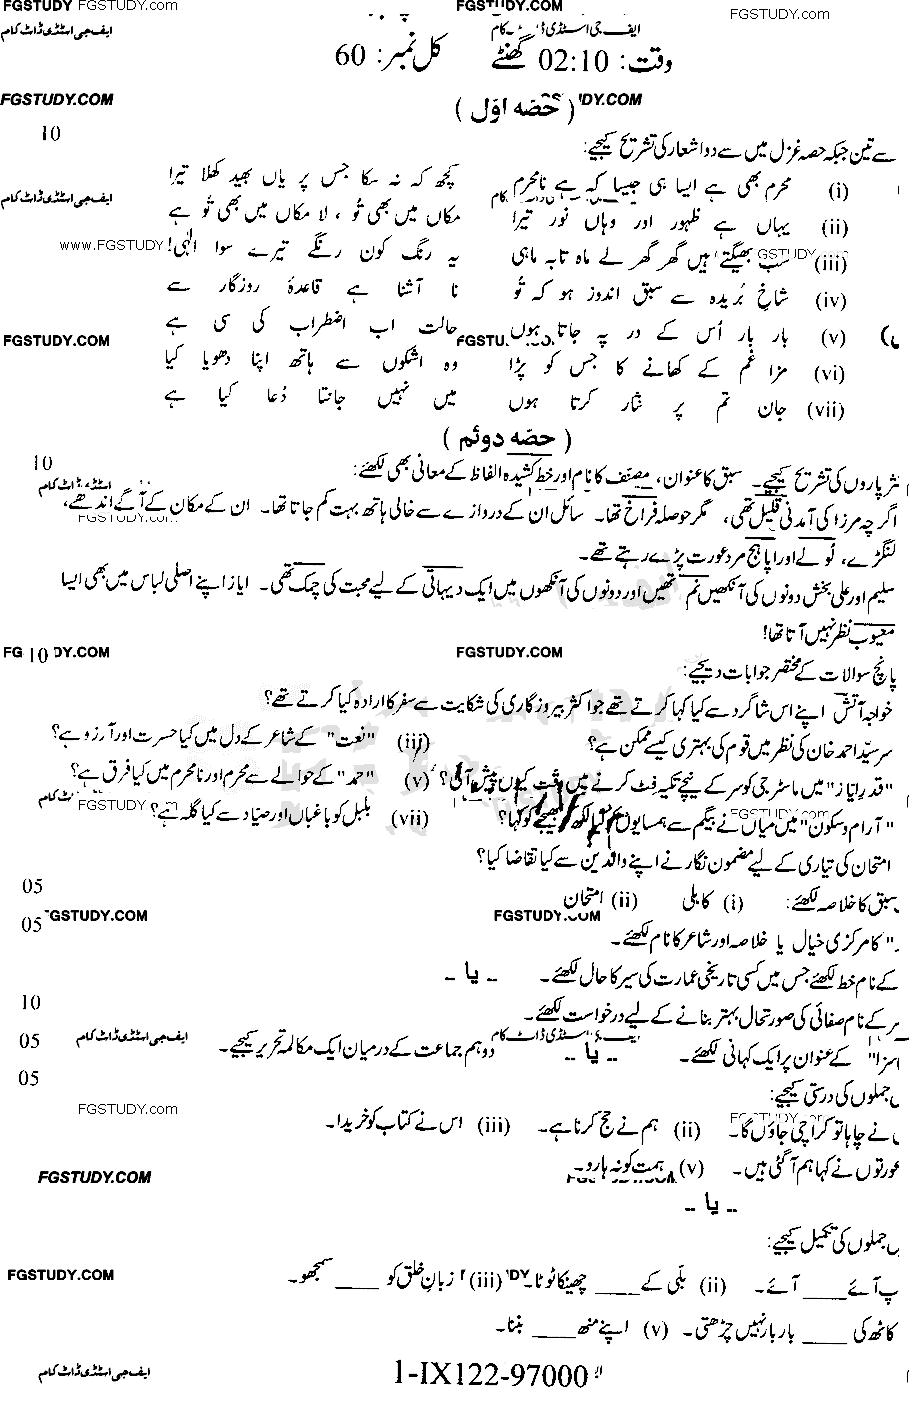 FGSTUDY FGSTUDY.COM FGSTUDY.COM FGSTUDY.COM
ایف جی اسٹڈی ڈاٹ کام
وقت: 02:10 گھنٹے کل نمبر: 60
FGSTUDY.COM ( حصہ اوّل ) DY.COM
سے تین جبکہ حصہ غزل میں سے دو اشعار کی تشریح کیجیے: 10
(i) محرم بھی ہے ایسا ہی جیسا کہ ہے نامحرم کچھ کہ نہ سکا جس پر یاں بھید کھلا تیرا
ایف جی اسٹڈی ڈاٹ کام
(ii) یہاں ہے ظہور اور وہاں نور تیرا مکاں میں بھی تُو ، لا مکاں میں بھی تُو ہے
(iii) سب بھیگتے ہیں گھر گھر لے ماہ تابہ ماہی یہ رنگ کون رنگے تیرے سوا الٰہی!
www.FGSTUDY FGSTUDY
(iv) شاخِ بُریدہ سے سبق اندوز ہو کہ تُو نا آشنا ہے قاعدۂ روزگار سے
(v) بار بار اُس کے در پہ جاتا ہوں حالت اب اضطراب کی سی ہے
FGSTUDY.COM
(vi) مزا غم کے کھانے کا جس کو پڑا وہ اشکوں سے ہاتھ اپنا دھویا کیا
(vii) جان تم پر نثار کرتا ہوں میں نہیں جانتا دُعا کیا ہے
( حصّہ دوئم )
نثر پاروں کی تشریح کیجیے۔ سبق کا عنوان، مصنف کا نام اور خط کشیدہ الفاظ کے معانی بھی لکھئے: 10
اگرچہ مرزا کی آمدنی قلیل تھی، مگر حوصلہ فراخ تھا۔ سائل ان کے دروازے سے خالی ہاتھ بہت کم جاتا تھا۔ ان کے مکان کے آگے اندھے،
لنگڑے، لُولے اور اپاہج مرد عورت پڑے رہتے تھے۔
سلیم اور علی بخش دونوں کی آنکھیں نم تھیں اور دونوں کی آنکھوں میں ایک دیہاتی کے لیے محبت کی چمک تھی۔ ایاز اپنے اصلی لباس میں بھی ایسا
معیوب نظر نہیں آتا تھا!
FG DY.COM FGSTUDY.COM
پانچ سوالات کے مختصر جوابات دیجیے: 10
خواجہ آتش اپنے اس شاگرد سے کیا کہا کرتے تھے جو اکثر بیروزگاری کی شکایت سے سفر کا ارادہ کیا کرتے تھے؟
سرسیّد احمد خان کی نظر میں قوم کی بہتری کیسے ممکن ہے؟ (iii) "نعت" کے شاعر کے دل میں کیا حسرت اور آرزو ہے؟
"قدرِ ایاز" میں ماسٹر جی کو سر کے نیچے تکیہ فٹ کرنے میں دِقت کیوں پیش آئی؟ (v) "حمد" کے حوالے سے محرم اور نامحرم میں کیا فرق ہے؟
FGSTUDY.com FGSTUDY.com
"آرام و سکون" میں میاں نے بیگم سے ہمسایوں کو کیا لکھ بھیجنے کو کہا؟ (vii) بلبل کو باغباں اور صیاد سے کیا گلہ ہے؟
امتحان کی تیاری کے لیے مضمون نگار نے اپنے والدین سے کیا تقاضا کیا؟
سبق کا خلاصہ لکھئے: (i) کاہلی (ii) امتحان 05
FGSTUDY.COM FGSTUDY.COM
" کا مرکزی خیال یا خلاصہ اور شاعر کا نام لکھئے۔ 05
کے نام خط لکھئے جس میں کسی تاریخی عمارت کی سیر کا حال لکھئے۔ - یا -
کے نام صفائی کی صورتحال بہتر بنانے کے لیے درخواست لکھئے۔ 10
" کے عنوان پر ایک کہانی لکھئے۔ - یا - دو ہم جماعت کے درمیان ایک مکالمہ تحریر کیجیے۔ 05
ایف جی اسٹڈی ڈاٹ کام
جملوں کی درستی کیجیے: 05
FGSTUDY.com
نے چاہا تو کراچی جاؤں گا۔ (ii) ہم نے حج کرنا ہے۔ (iii) اس نے کتاب کو خریدا۔
عورتوں نے کہا ہم آ گئی ہیں۔ (v) ہمت کو نہ ہارو۔
FGSTUDY.COM
- یا -
جملوں کی تکمیل کیجیے:
FGSTUDY.COM
آئے ____ آئے۔ (ii) بلّی کے ____ چھینکا ٹوٹا۔ (iii) زبانِ خلق کو ____ سمجھو۔
کاٹھ کی ____ بار بار نہیں چڑھتی۔ (v) اپنے منھ ____ بننا۔
1-IX122-97000
ایف جی اسٹڈی ڈاٹ کام